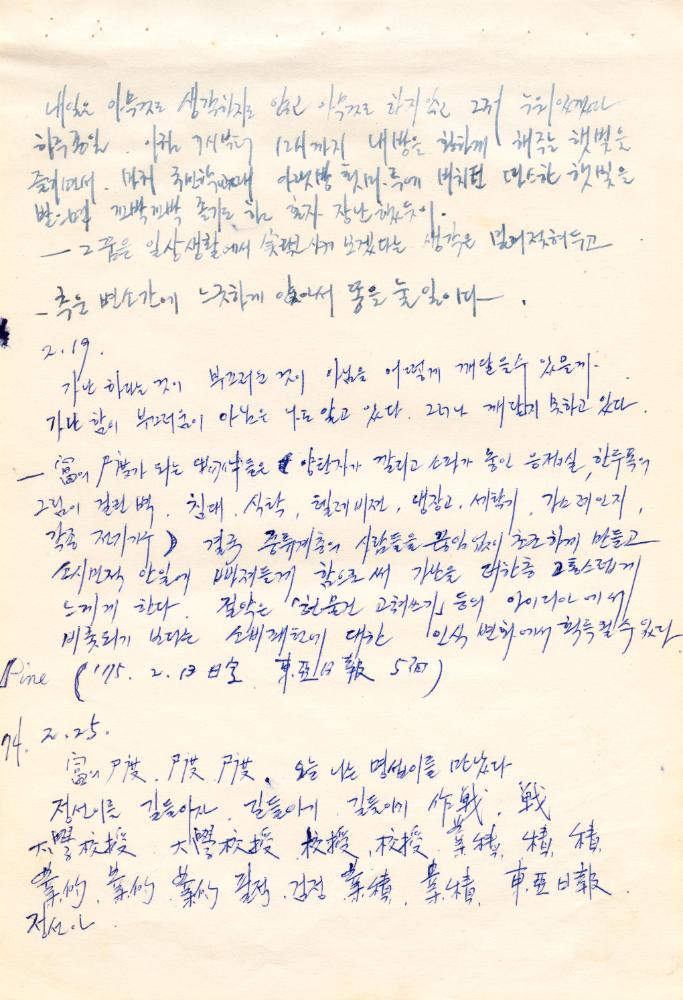 내일은 아무것도 생각하지도 않고 아무것도 하지 않고 그저 누워 있겠다
하루종일. 아침 7시부터 12시까지 내 방을 환하게 해주는 햇빛을
즐기면서. 마치 국민학교때 아랫방 툇마루에 비치던 따스한 햇빛을
받으며 꼬박꼬박 졸기도 하고 혼자 장난했듯이.
— 그 꿈을 일상생활에서 실현시켜 보겠다는 생각은 밀려젖혀두고
— 추운 변소간에 느긋하게 앉아서 똥을 눌 일이다—.
2.19.
가난하다는 것이 부끄러운 것이 아님을 어떻게 깨달을 수 있을까.
가난함이 부끄러움이 아님은 나도 알고 있다. 그러나 깨닫지 못하고 있다.
— 富의 尺度가 되는 物件들은 ( 양탄자가 깔리고 소파가 놓인 응접실, 한두폭의
그림이 걸린 벽, 침대, 식탁, 텔레비젼, 냉장고, 세탁기, 가스레인지,
각종 전기기구 ) 결국 중류계층의 사람들을 끊임없이 초조하게 만들고
소시민적 안일에 빠져들게 함으로써 가난을 더한층 고통스럽게
느끼게 한다. 절약은 「헌물건 고쳐쓰기」 등의 아이디아에서
비롯되기 보다는 소비패턴에 대한 인식 변화에서 획득될 수 있다
Pine ('75. 2. 13 日字 東亞日報 5面)
74. 2. 25.
富의 尺度. 尺度 尺度. 오늘 나는 명섭이를 만났다
정선이를 길들이자. 길들이기 길들이기 作戰. 戰
大學校授 大學校授 校授, 校授, 業績, 績, 績,
業的, 業的 業的 필적. 검정 業績, 業績, 東亞日報.
정선이.